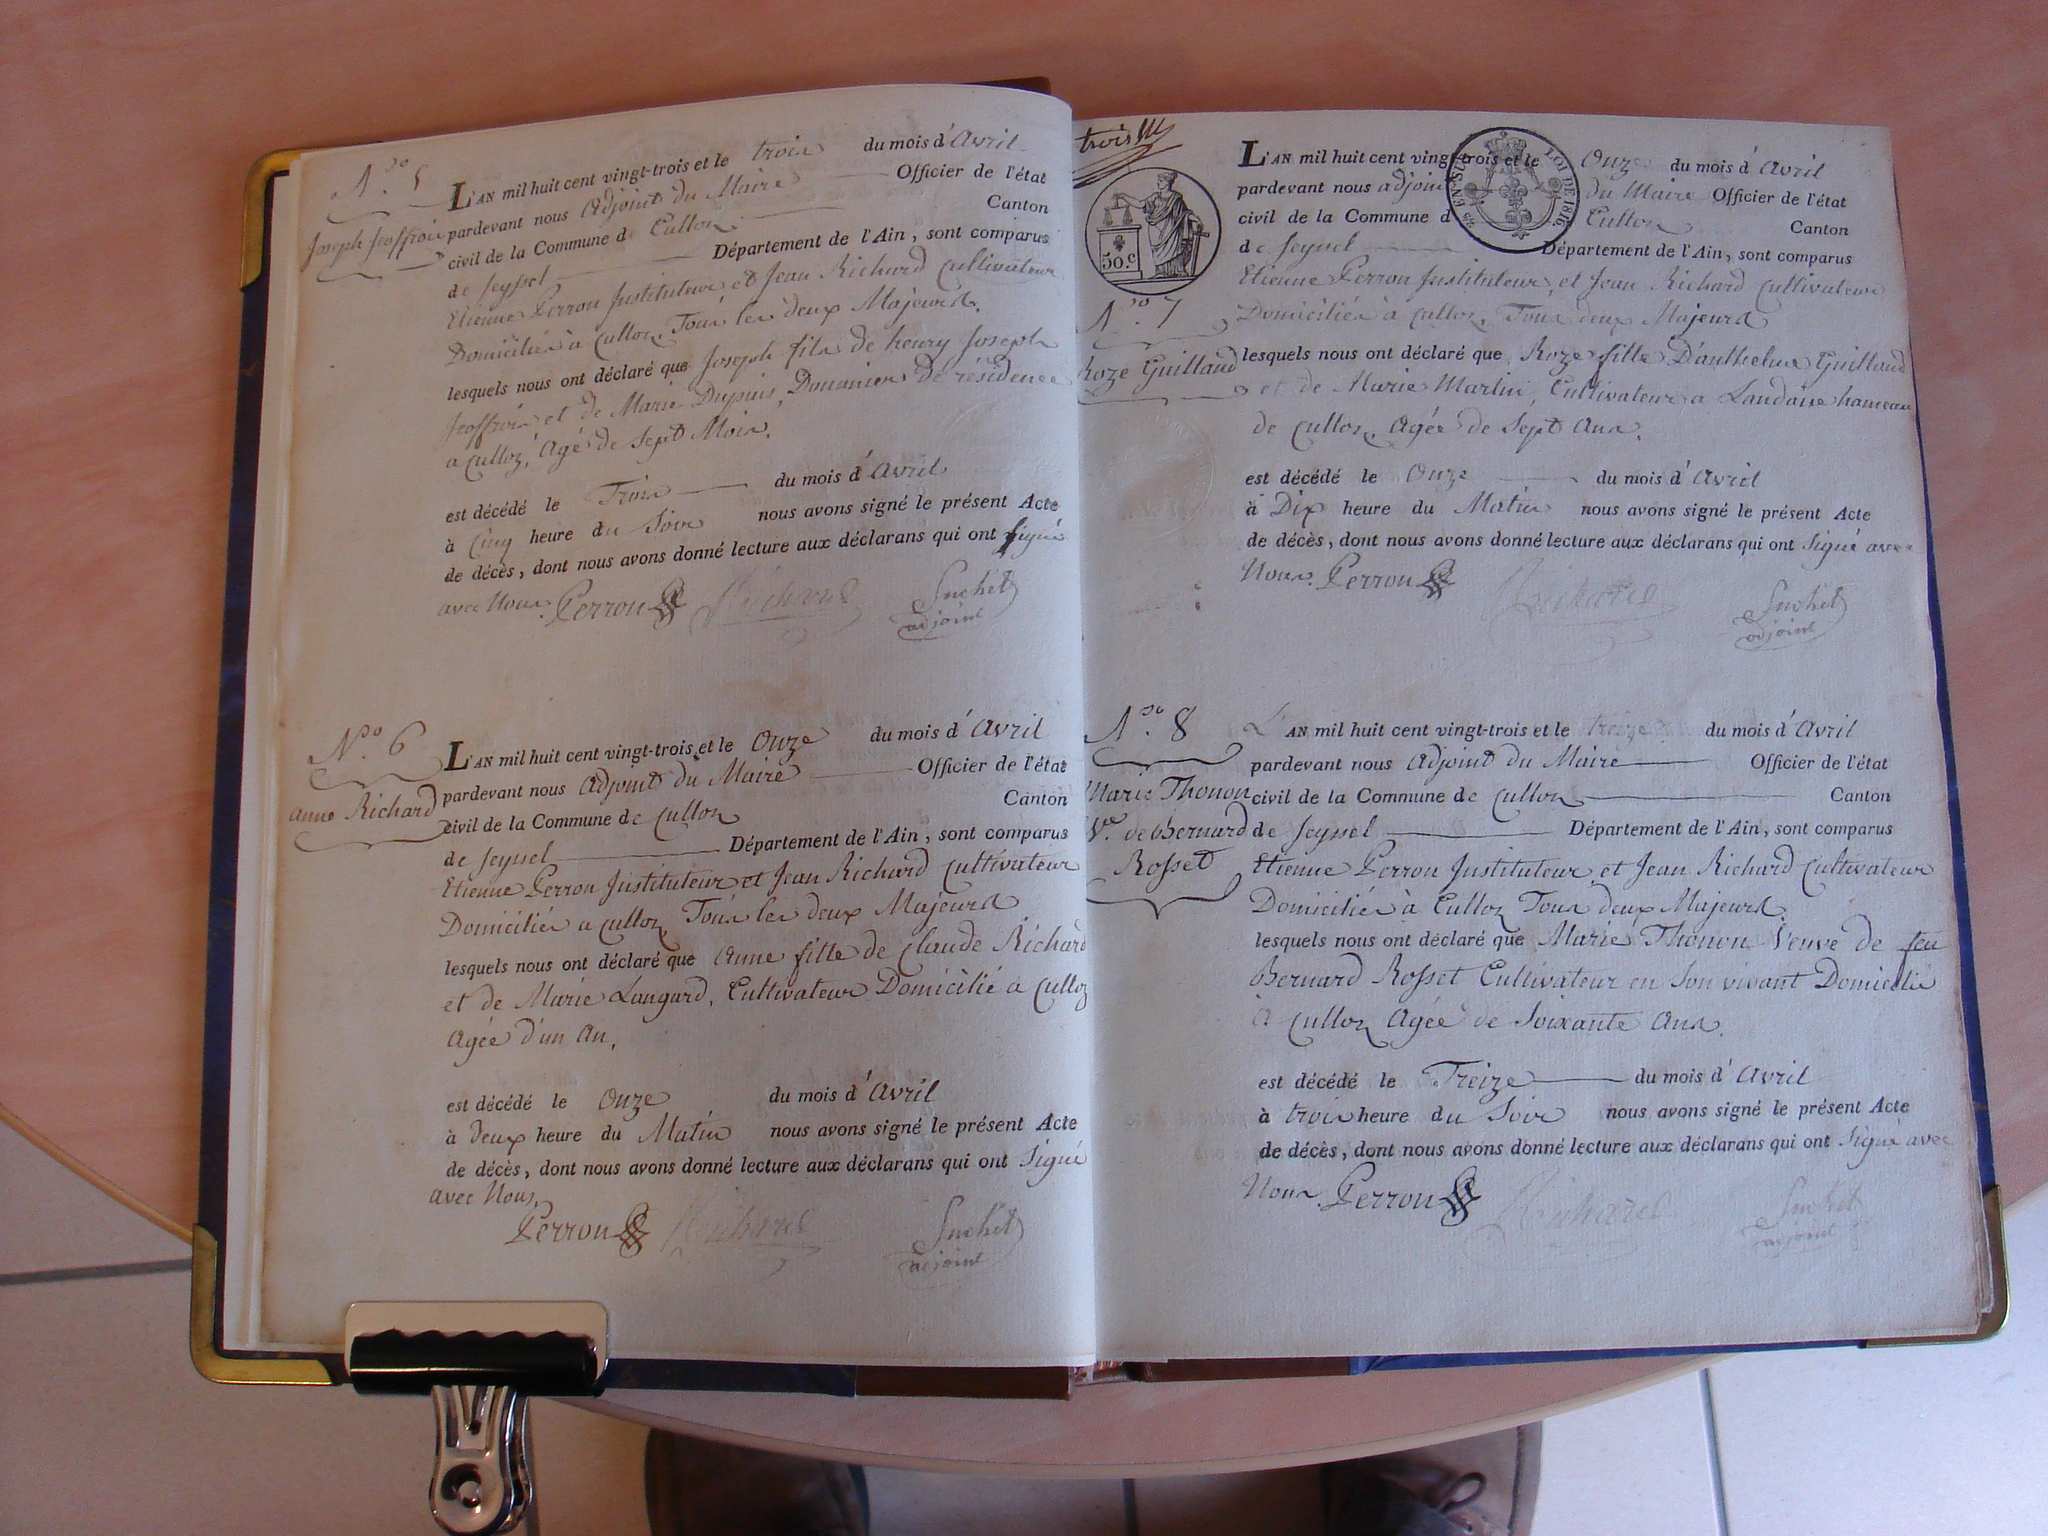 N.º 5
Joseph Jeoffroi
L'AN mil huit cent vingt-trois et le trois du mois d'Avril
pardevant nous Adjoint du Maire Officier de l'état
civil de la Commune de Culloz Canton
de Seyssel Département de l'Ain, sont comparus
Etienne Perron Instituteur et Jean Richard Cultivateur
Domiciliés à Culloz, Tous les deux Majeurs.
lesquels nous ont déclaré que Joseph fils de henry Joseph
Jeoffroi et de Marie Dupuis, Douanier de résidence
a Culloz, Agé de Sept Mois.
est décédé le Trois du mois d'Avril
à Cinq heure du Soir nous avons signé le présent Acte
de décès, dont nous avons donné lecture aux déclarans qui ont signé
avec Nous. Perron Richard Suchet
adjoint
N.º 6
Anne Richard
L'AN mil huit cent vingt-trois et le Onze du mois d'Avril
pardevant nous Adjoint du Maire Officier de l'état
civil de la Commune de Culloz Canton
de Seyssel Département de l'Ain, sont comparus
Etienne Perron Instituteur et Jean Richard Cultivateur
Domiciliés a Culloz, Tous les deux Majeurs
lesquels nous ont déclaré que Anne fille de Claude Richard
et de Marie Langard, Cultivateur Domicilié a Culloz
Agée d'un An.
est décédé le Onze du mois d'Avril
à deux heure du Matin nous avons signé le présent Acte
de décès, dont nous avons donné lecture aux déclarans qui ont Signé
avec Nous.
Perron Richard Suchet
adjoint
trois
50.c
LOI DE 1816
N.º 7
Roze Guilland
L'AN mil huit cent vingt-trois et le Onze du mois d'Avril
pardevant nous adjoint du Maire Officier de l'état
civil de la Commune de Culloz Canton
de Seyssel Département de l'Ain, sont comparus
Etienne Perron Instituteur, et Jean Richard Cultivateur
Domiciliés à Culloz, Tous deux Majeurs
lesquels nous ont déclaré que Roze fille D'anthelme Guilland
et de Marie Martin, Cultivateur a Landaise hameau
de Culloz, Agée de Sept Ans.
est décédé le Onze du mois d'Avril
à Dix heure du Matin nous avons signé le présent Acte
de décès, dont nous avons donné lecture aux déclarans qui ont Signé avec
Nous. Perron Richard Suchet
adjoint
N.º 8
Marie Thonon
V.ve de Bernard
Rosset
L'AN mil huit cent vingt-trois et le treize du mois d'Avril
pardevant nous Adjoint du Maire Officier de l'état
civil de la Commune de Culloz Canton
de Seyssel Département de l'Ain, sont comparus
Etienne Perron Instituteur, et Jean Richard Cultivateur
Domiciliés à Culloz Tous deux Majeurs.
lesquels nous ont déclaré que Marie Thonon Veuve de feu
Bernard Rosset Cultivateur en Son vivant Domicilié
à Culloz Agée de Soixante Ans.
est décédé le Treize du mois d'Avril
à trois heure du Soir nous avons signé le présent Acte
de décès, dont nous avons donné lecture aux déclarans qui ont Signé avec
Nous. Perron Richard Suchet
adjoint